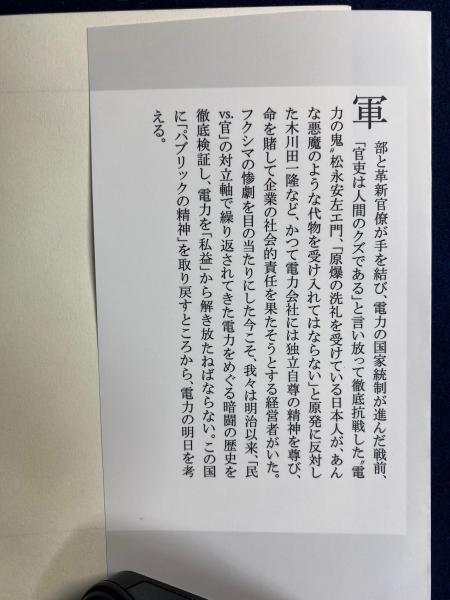 軍部と革新官僚が手を結び、電力の国家統制が進んだ戦前、
「官吏は人間のクズである」と言い放って徹底抗戦した〝電
力の鬼〟松永安左エ門、「原爆の洗礼を受けている日本人が、あん
な悪魔のような代物を受け入れてはならない」と原発に反対し
た木川田一隆など、かつて電力会社には独立自尊の精神を尊び、
命を賭して企業の社会的責任を果たそうとする経営者がいた。
フクシマの惨劇を目の当たりにした今こそ、我々は明治以来、「民
vs.官」の対立軸で繰り返されてきた電力をめぐる暗闘の歴史を
徹底検証し、電力を「私益」から解き放たねばならない。この国
に「パブリックの精神」を取り戻すところから、電力の明日を考
える。